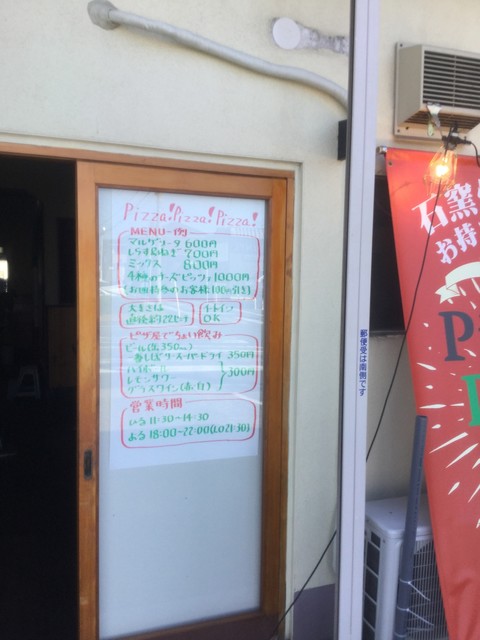 Pizza! Pizza! Pizza!
MENU一例
マルゲリータ 600円
しらす&ねぎ 700円
ミックス 800円
4種のチーズピッツァ 1000円
お皿持参のお客様 100円引き
大きさは
直径約22センチ
イートイン
OK
ピザ屋でちょい飲み
ビール(缶350ml)
一番しぼり・スーパードライ 350円
ハイボール
レモンサワー
300円
グラスワイン(赤・白)
営業時間
ひる 11:30〜14:30
よる 18:00〜22:00(LO21:30)
郵便受は南側です
石窯
お持